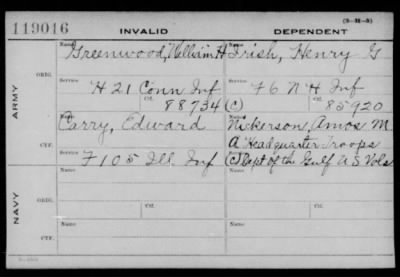 (3-H-5)
119016 INVALID DEPENDENT
Name Name
Greenwood, William H Irish, Henry G
ORIG.
Service Service
H 21 Conn Inf F 6 N H Inf
Ctf. Ctf.
88734 (C) 85920
ARMY
Name Name
Carry, Edward Nickerson, Amos M
A Headquarter Troops
CTF.
Service
F 105 Ill Inf (C) Dept of the Gulf U S Vols
NAVY
Name Name
ORIG.
Service Service
Ctf. Ctf.
Name Name
CTF.
Service Service